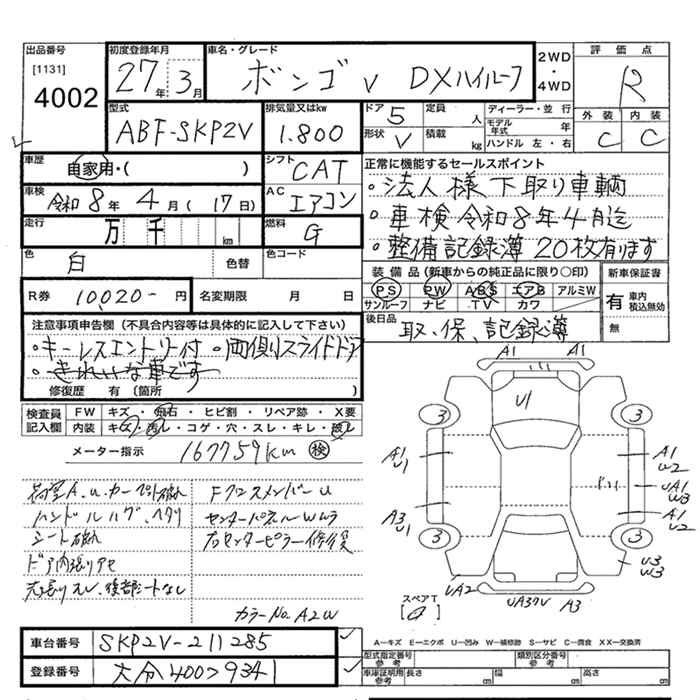 出品番号 [1131] 4002
初度登録年月 27年 3月
車名・グレード ボンゴ V DXハイルーフ
2WD ・ 4WD
評価点 R
型式 ABF-SKP2V
排気量又はkw 1.800
ドア 5 定員 人
形状 V 積載 kg
ディーラー・並行
モデル年式 年
ハンドル 左・右
外装 C 内装 C
車歴 自家用・( )
シフト CAT
車検 令和 8年 4月(17日)
AC エアコン
走行 万 千 km
燃料 G
正常に機能するセールスポイント
。法人様下取り車輌
。車検令和8年4月迄
。整備記録簿 20枚有ります
色 白 色替
色コード
R券 10,020- 円 名変期限 月 日
装備品(新車からの純正品に限り○印)
PS PW ABS エアB アルミW
サンルーフ ナビ TV カワ
新車保証書 有 車内積込無効 無
後日品 取、保、記録簿
注意事項申告欄(不具合内容等は具体的に記入して下さい)
。キーレスエントリー付 。両側スライドドア
。きれいな車です
修復歴 有(箇所 )
検査員記入欄 FW キズ・飛石・ヒビ割・リペア跡・X要
内装 キズ・汚レ・コゲ・穴・スレ・キレ・破レ
メーター指示 167759km 検
ハンドルハゲ、ヘタリ
シート破れ
ドア内張りアセ
Fクロスメンバー u
右センターピラー修復
カラーNo. A2W
A1 A1
U1
3 3
A1 U1
A1 U2
UA1 W3
A3 U1
A1 U2
3 3
U3 W3
UA2
A3
スペアT
A−キズ E−エクボ U−凹み W−補修跡 S−サビ C−腐食 XX−交換済
車台番号 SKP2V-211285
登録番号 大分400つ9341
型式指定番号 参考 類別区分番号 参考
車庫証明用 参考 長さ cm 幅 cm 高さ cm